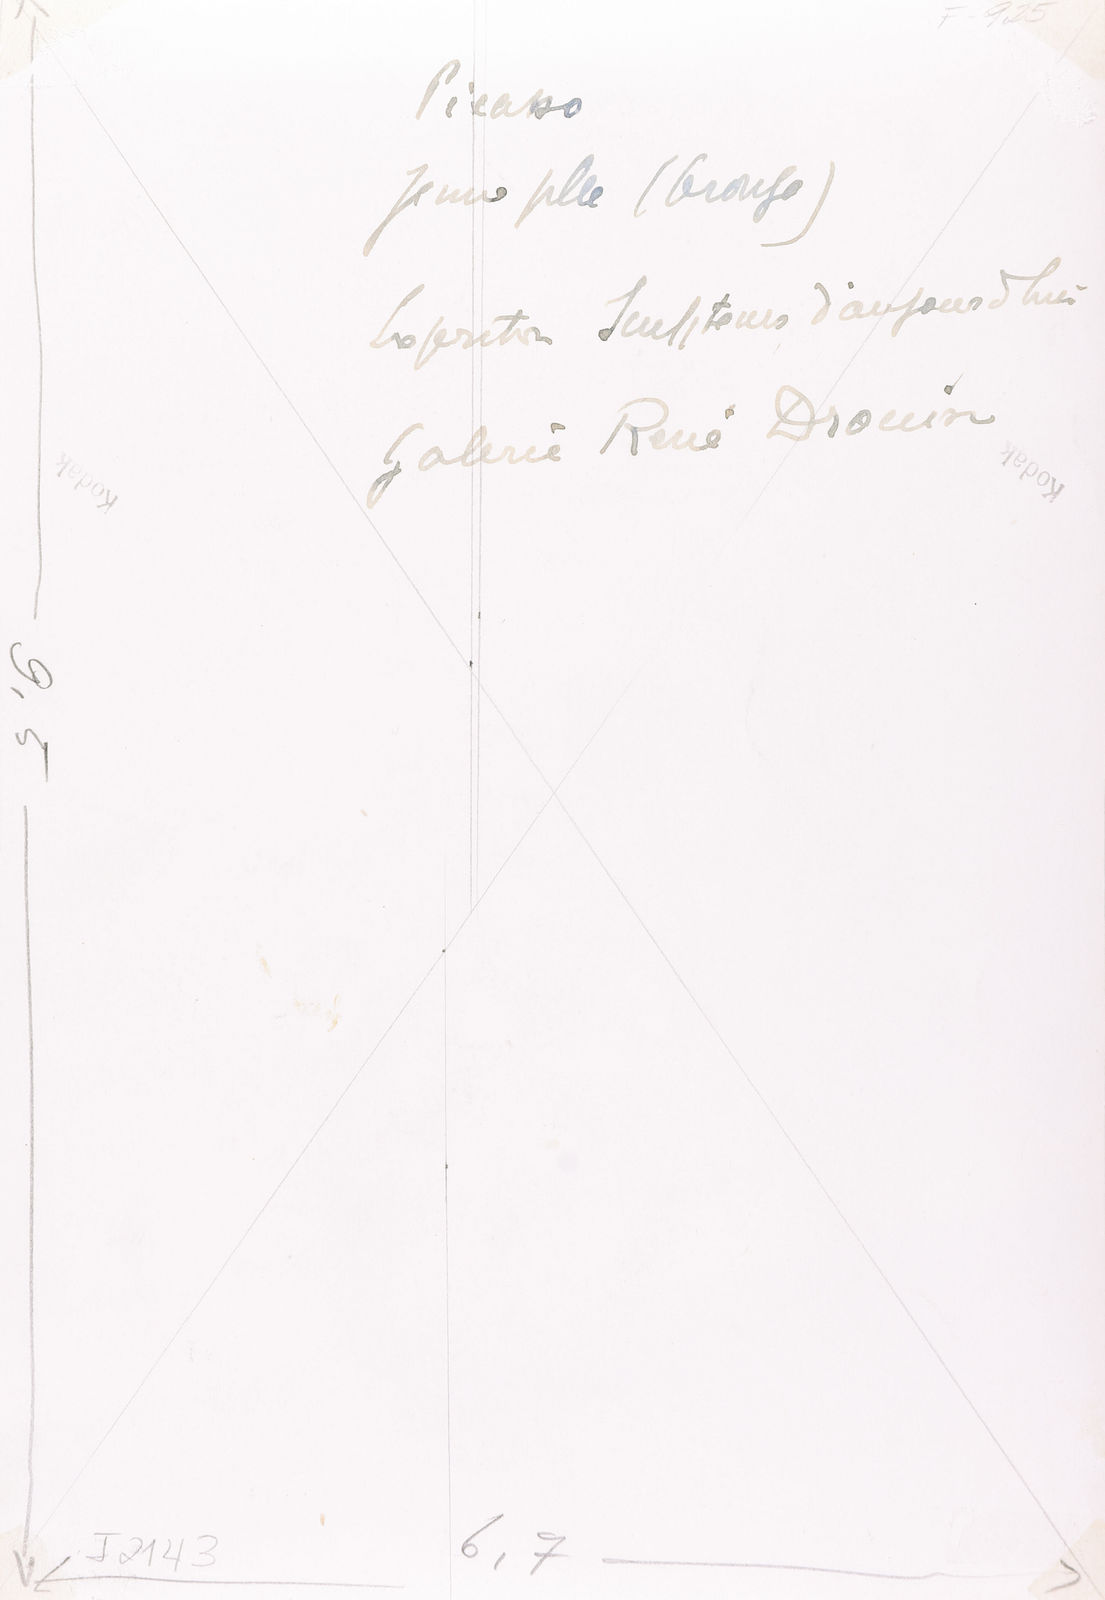 F-925
Picasso
Jeune fille (bronze)
Exposition Sculpteurs d'aujourd'hui
Galerie René Drouin
Kodak
Kodak
9,5
I2143
6,7